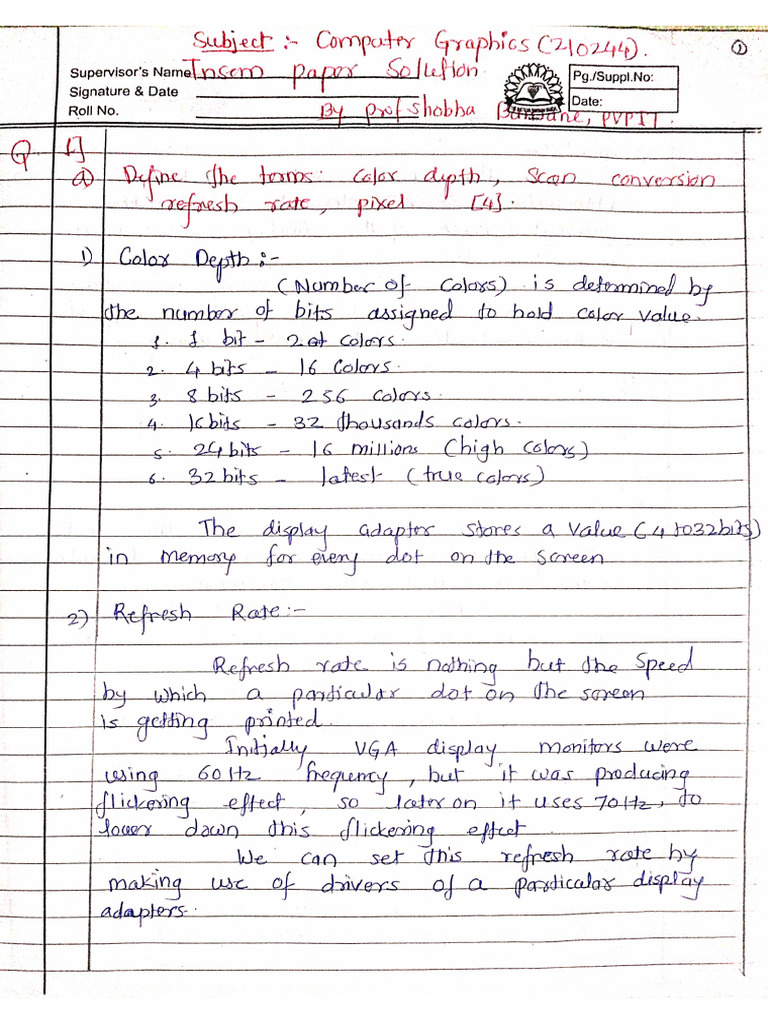 Subject :- Computer Graphics (210244). 1
Supervisor's Name Insem paper Solution Pg./Suppl.No:
Signature & Date
Roll No. By Prof shobha PVPIT. Date:
Q 1]
a) Define the terms: color depth, Scan conversion
refresh rate, pixel [4].
1) Color Depth :-
(Number of Colors) is determined by
the number of bits assigned to hold color value.
1. 1 bit - 2 of colors.
2. 4 bits - 16 colors.
3. 8 bits - 256 colors.
4. 16 bits - 32 thousands colors.
5. 24 bits - 16 millions (high colors)
6. 32 bits - latest (true colors)
The display adapter stores a value (4 to 32 bits)
in memory for every dot on the screen
2) Refresh Rate :-
Refresh rate is nothing but the speed
by which a particular dot on the screen
is getting printed.
Initially VGA display monitors were
using 60Hz frequncy, but it was producing
flickering effect, so later on it uses 70Hz, to
lower down this flickering effect
We can set this refresh rate by
making use of drivers of a particular display
adapters.